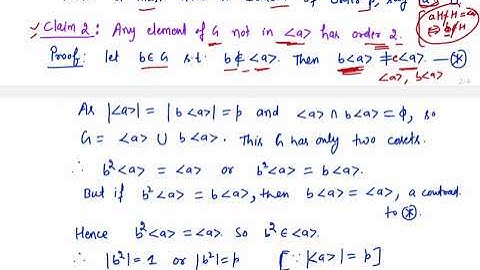 say
Claim 2: Any element of G not in <a> has order 2.
aH≠H
⇔ a∉H
Proof: let b∈G s.t. b∉<a>. Then b<a> ≠ e<a>. —⊛
<a>, b<a>
As |<a>| = |b<a>| = p and <a> ∩ b<a> = ϕ, so
G = <a> ∪ b<a>. This G has only two cosets.
∴ b²<a> = <a> or b²<a> = b<a>.
But if b²<a> = b<a>, then b<a> = <a>, a contrad.
to ⊛.
Hence b²<a> = <a>. So b² ∈ <a>.
∴ |b²| = 1 or |b²| = p [∵ |<a>| = p]